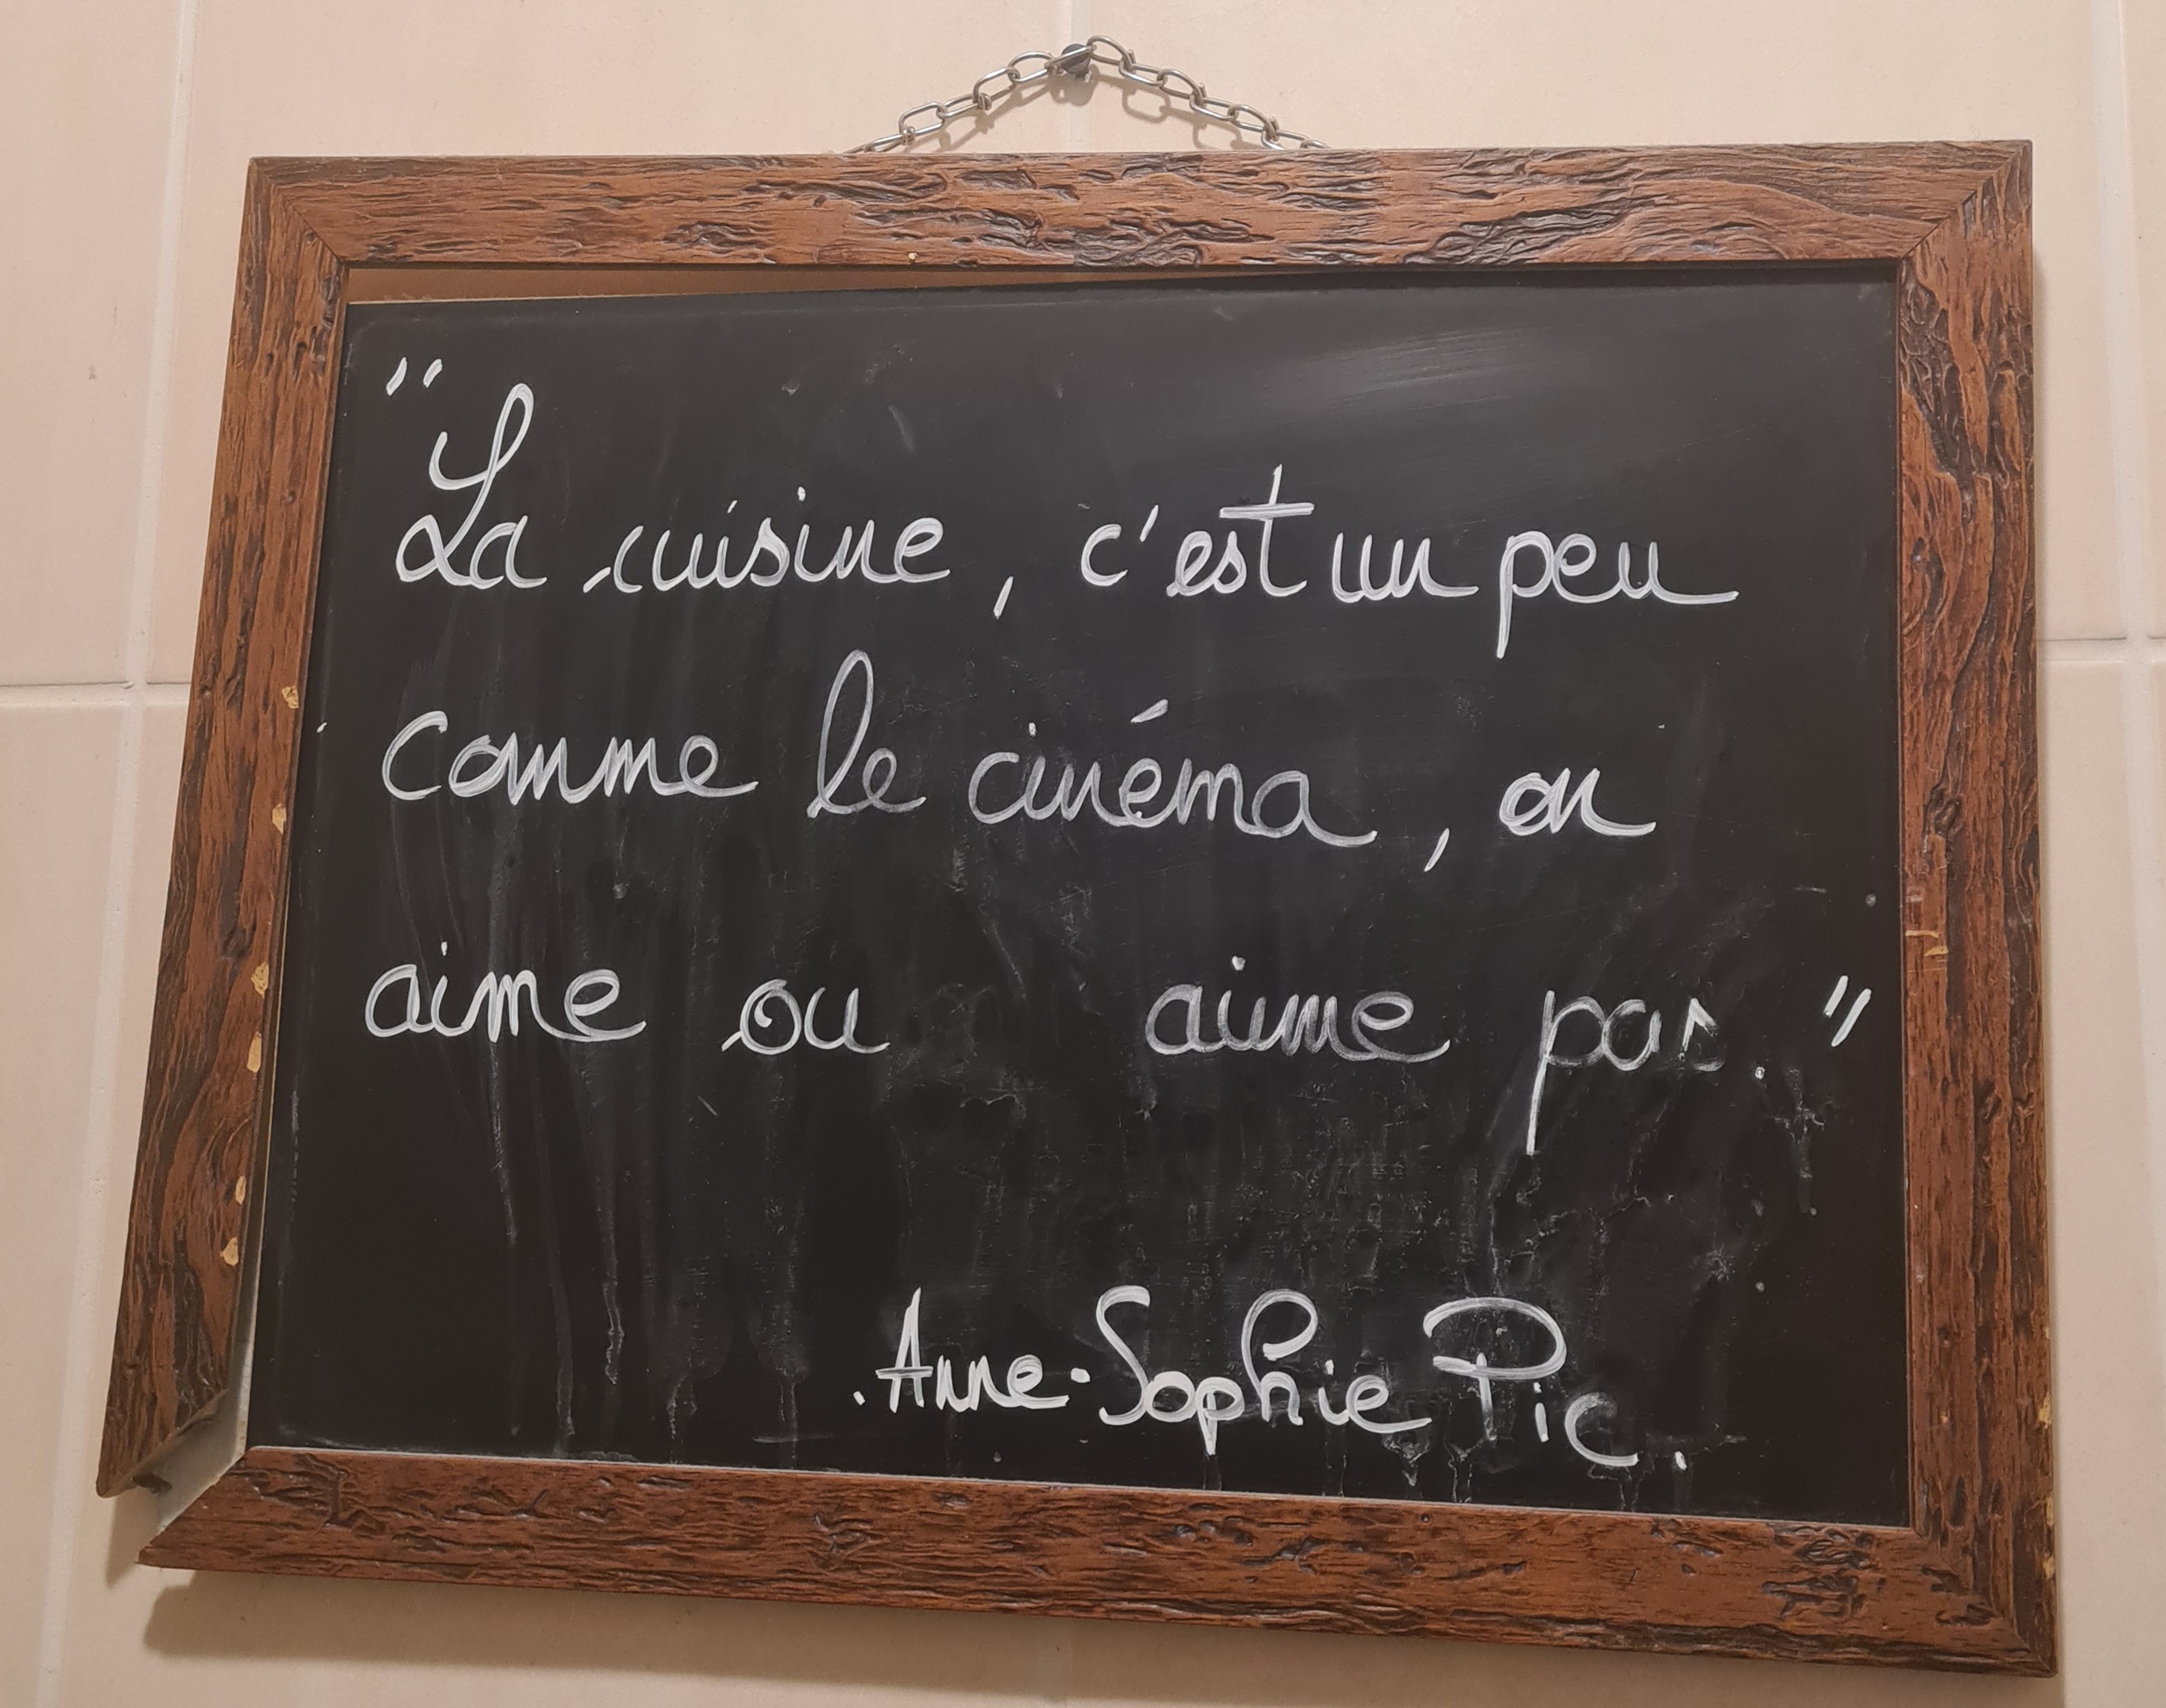 "La cuisine, c'est un peu
comme le cinéma, on
aime ou aime pas."
.Anne-Sophie Pic.